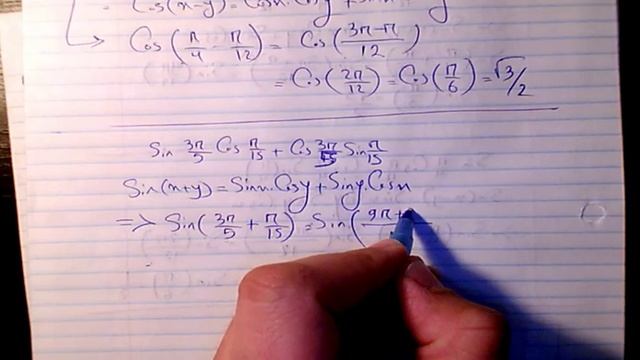 = Cos(x-y) = Cosx.Cosy +
→ Cos(π/4 - π/12) = Cos(3π-π/12)
= Cos(2π/12) = Cos(π/6) = √3/2
Sin 3π/5 Cos π/15 + Cos 3π/5 Sin π/15
Sin(x+y) = Sinx.Cosy + Siny.Cosx
=> Sin(3π/5 + π/15) = Sin(9π+